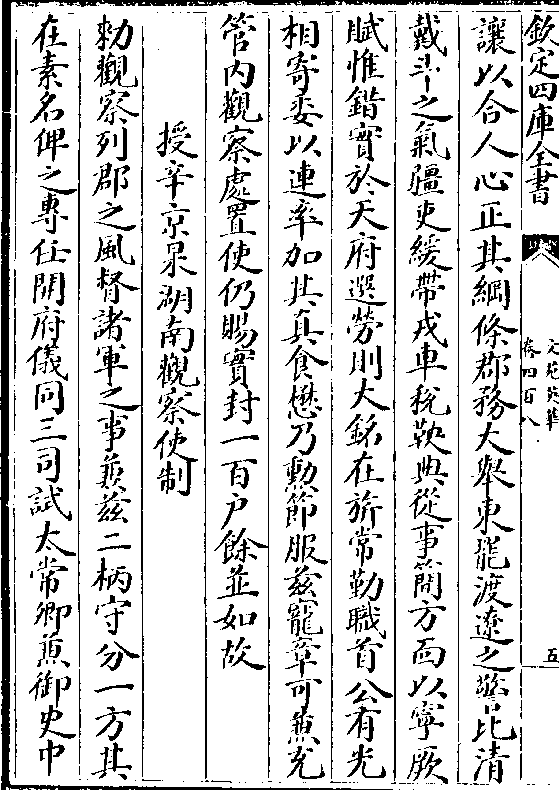 欽定四庫全書
文苑英華
卷四百八
五
讓以合人心正其綱條郡務大舉東罷渡遼之警北清
戴斗之氣疆吏緩帶戎車稅鞅典從事簡方面以寧厥
賦惟錯實於天府選勞則大銘在旂常勤職首公有光
相寄委以連率加其真食懋乃勲節服兹寵章可兼充
管内觀察處置使仍賜實封一百户餘並如故
授辛京杲湖南觀察使制
勑觀察列郡之風督諸軍之事兼兹二柄守分一方其
在素名俾之專任開府儀同三司試太常卿兼御史中